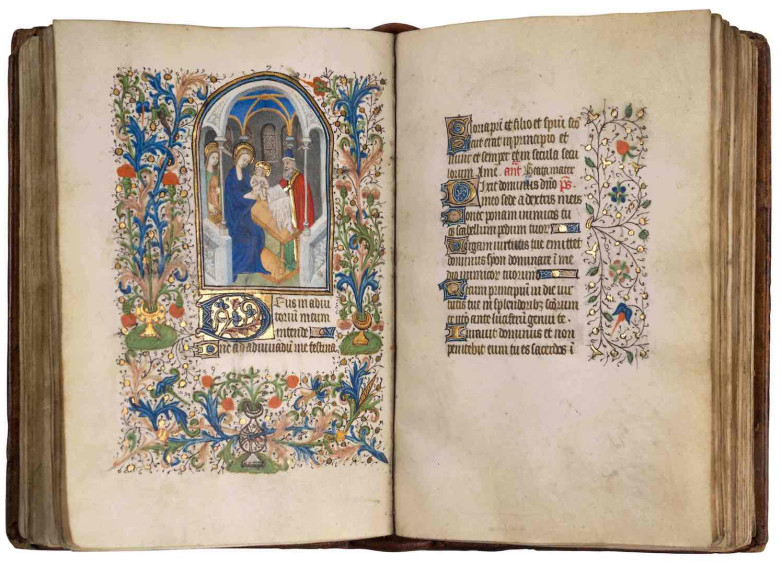 Deus in adiu
torium meum
intende
Dne ad adiuvādū me festina
Gloria pri et filio et spiui sco
Sicut erat in principio et
nunc et semper et in secula secu
lorum Ame. ant Beata mater
Dixit dominus dno ps.
meo sede a dextris meis
Donec ponam inimicos tu
os scabellum pedum tuor
Virgam virtutis tue emittet
dominus syon dominare i me
dio inimicor tuorum
Tecum principium in die vir
tutis tue in splendoribz scorum
ex utero ante luciferū genui te.
Iuravit dominus et non
penitebit eum tu es sacerdos i